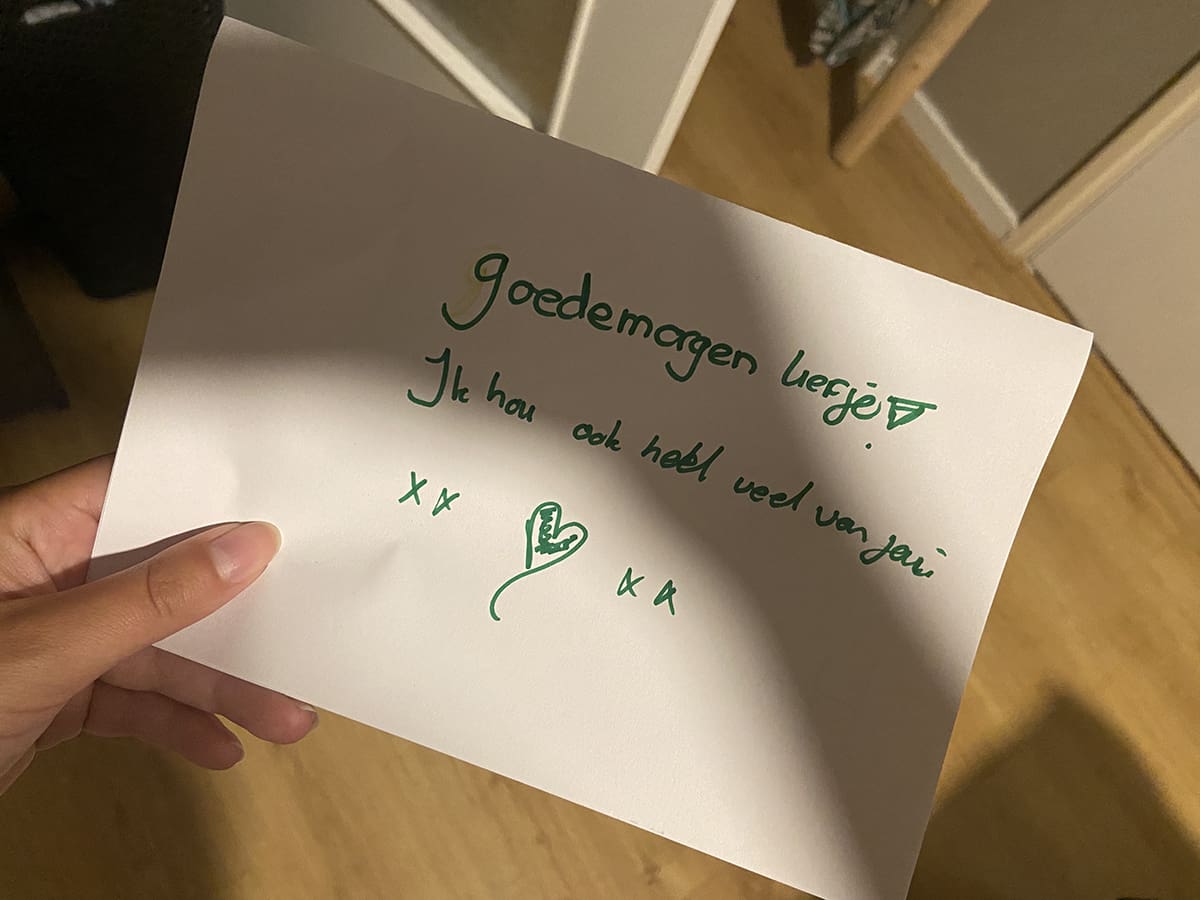 goedemorgen liefje!
Ik hou ook heel veel van jou
xx xx